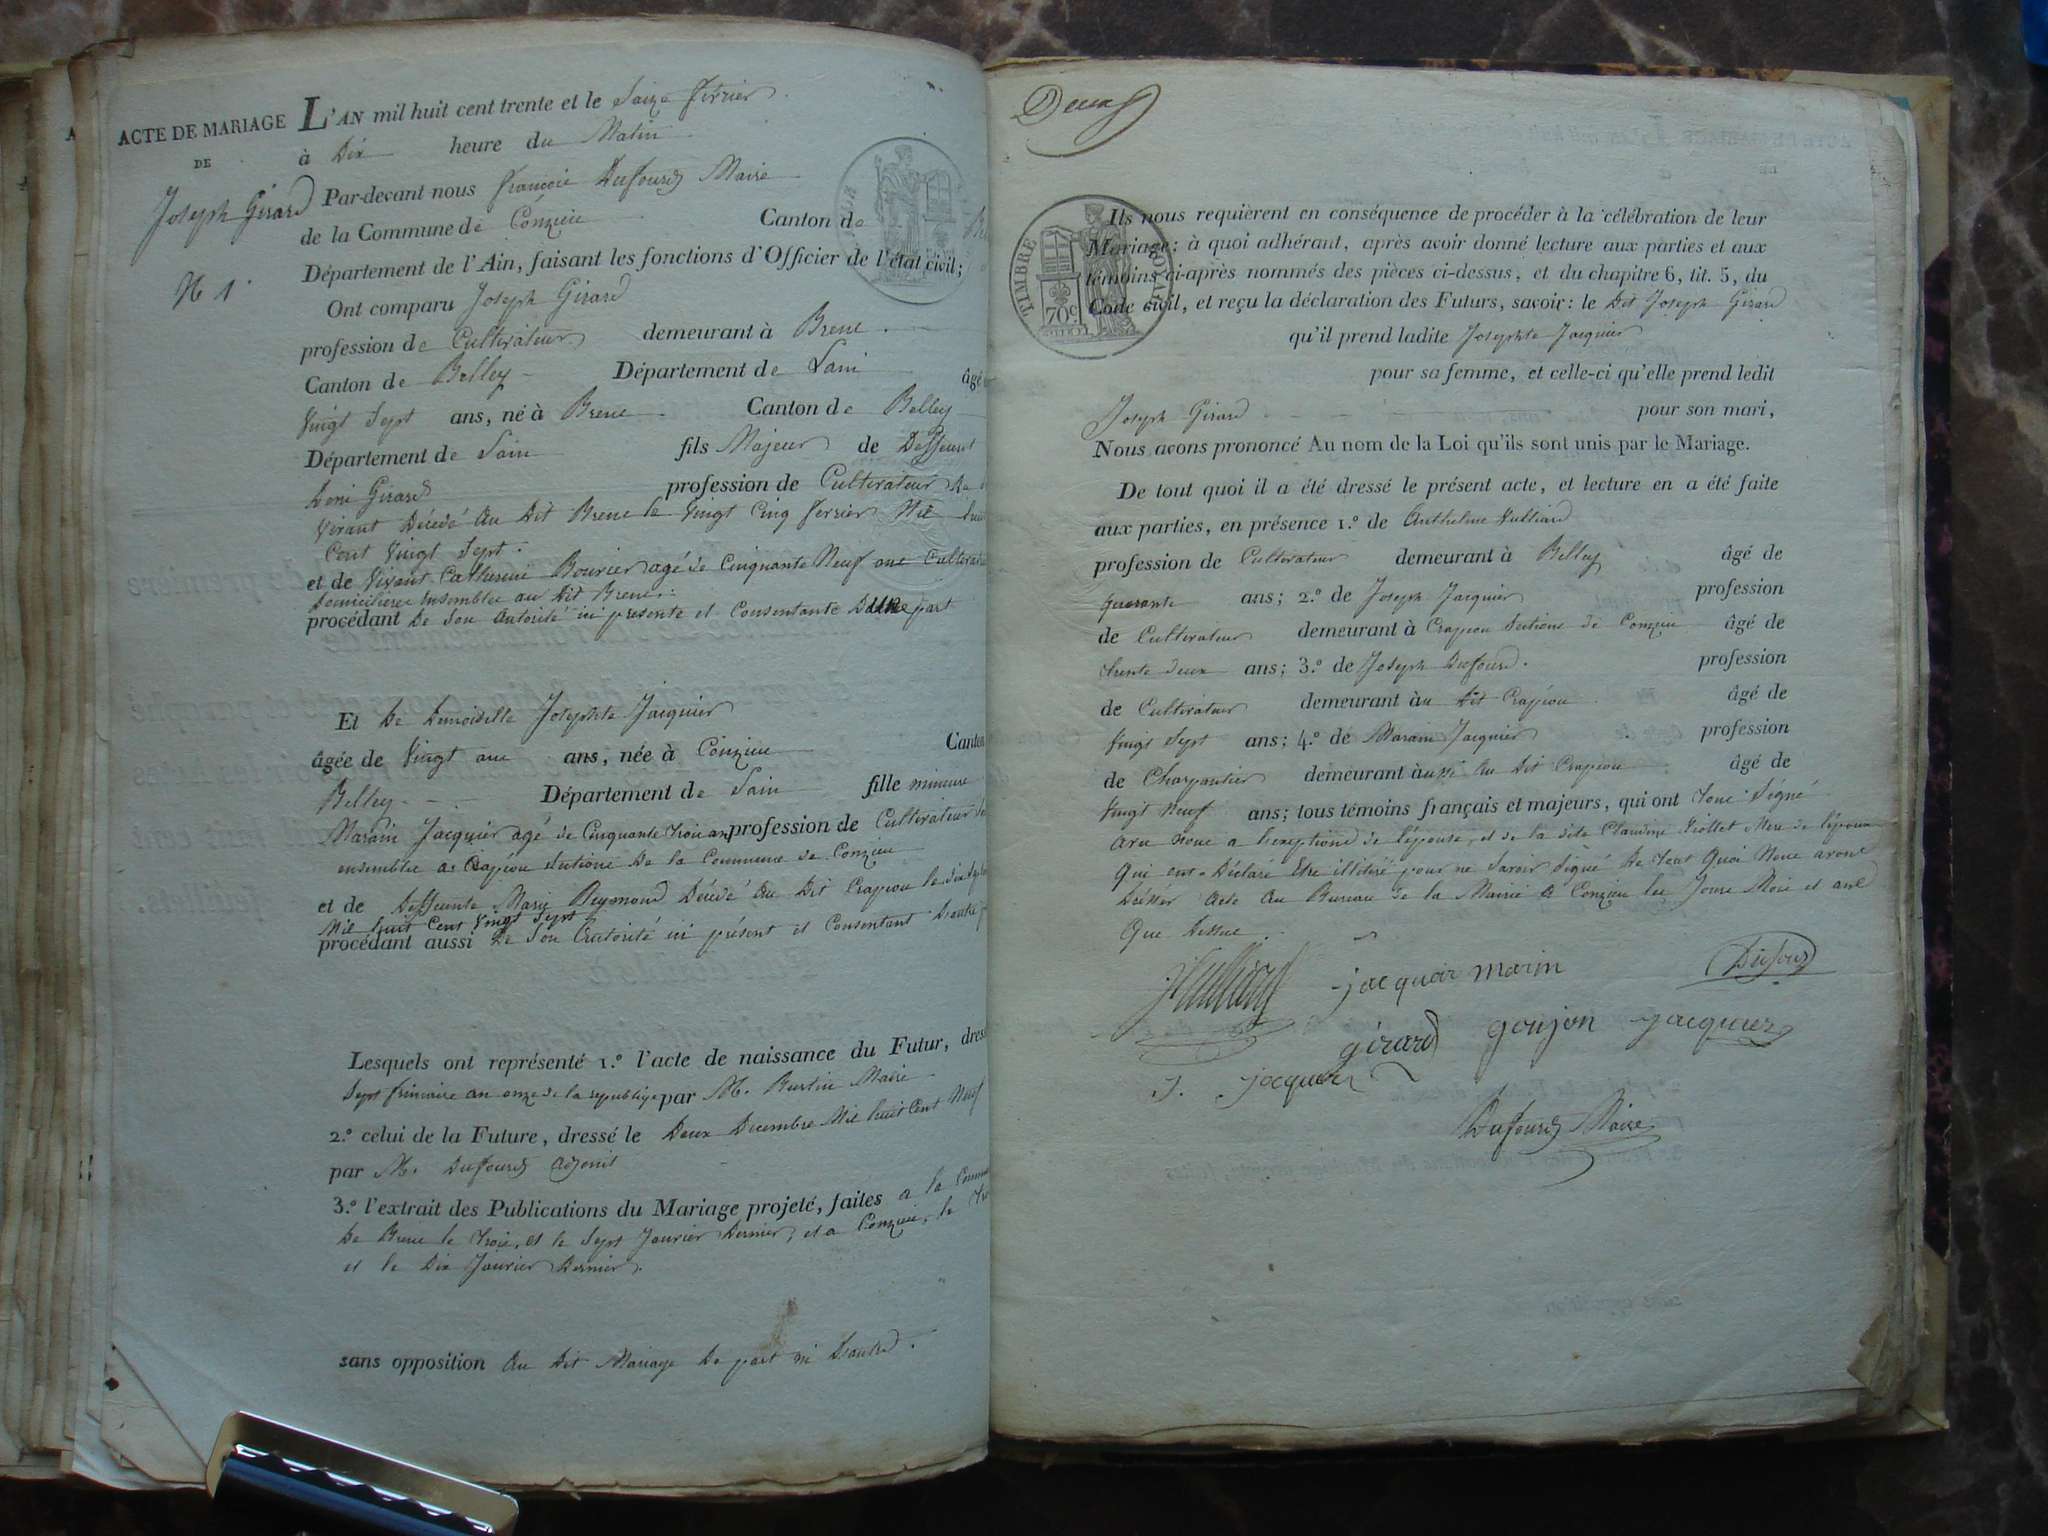 ACTE DE MARIAGE
DE
Joseph Girard
N 1
L'AN mil huit cent trente et le Saize février
à Dix heure du Matin
Par-devant nous françois Dufourd Maire
de la Commune de Conzieu Canton de
Département de l'Ain, faisant les fonctions d'Officier de l'état civil;
Ont comparu Joseph Girard
profession de Cultivateur demeurant à Brene
Canton de Belley Département de Lain âgé
Vingt Sept ans, né à Brene Canton de Belley
Département de Lain fils Majeur de Deffeunt
Deni Girard profession de Cultivateur
Vivant Décédé Au Dit Brene le Vingt Cinq fevrier Mil huit
Cent Vingt Sept.
et de Vivant Catherine Bouvier agé de Cinquante Neuf ans Cultivat
Domiciliere Ensemblee au Dit Brene
procédant De Son Autorité ici présente et Consentante Dune part
Et De Demoiselle Josephte Jacquier
âgée de Vingt ans ans, née à Conzieu Canton
Belley Département de Lain fille mineure
Marain Jacquier agé de Cinquante trois an profession de Cultivateur
ensemblee a Crapéou Sectione De la Commune de Conzieu
et de Deffeunte Marie Reymond Décédé Au Dit Crapéou le
Mil huit Cent Vingt Sept
procédant aussi De Son Autorité ici présent et Consentant Dautre
Lesquels ont représenté 1.º l'acte de naissance du Futur, dres
Sept frimaire an onze de la republique par M. Burtin Maire
2.º celui de la Future, dressé le Deux Decembre Mil huit Cent Neuf
par M. Dufourd adjoint
3.º l'extrait des Publications du Mariage projeté, faites a la Commun
De Brene le trois, et le Sept Janvier Dernier, et a Conzieu, le
et le Dix Janvier Dernier.
sans opposition Au Dit Mariage De part ni Dautre.
TIMBRE ROYAL
70c
Ils nous requièrent en conséquence de procéder à la célébration de leur
Mariage: à quoi adhérant, après avoir donné lecture aux parties et aux
témoins ci-après nommés des pièces ci-dessus, et du chapitre 6, tit. 5, du
Code civil, et reçu la déclaration des Futurs, savoir: le Dit Joseph Girard
qu'il prend ladite Josephte Jacquier
pour sa femme, et celle-ci qu'elle prend ledit
Joseph Girard pour son mari,
Nous avons prononcé Au nom de la Loi qu'ils sont unis par le Mariage.
De tout quoi il a été dressé le présent acte, et lecture en a été faite
aux parties, en présence 1.º de Anthelme Hulliard
profession de Cultivateur demeurant à Belley âgé de
quarante ans; 2.º de Joseph Jacquier profession
de Cultivateur demeurant à Crapeou Sectione de Conzieu âgé de
trente deux ans; 3.º de Joseph Dufourd. profession
de Cultivateur demeurant àu Dit Crapéou âgé de
Vingt Sept ans; 4.º de Marain Jacquier profession
de Charpantier demeurant àussi Au Dit Crapéou âgé de
Vingt Neuf ans; tous témoins français et majeurs, qui ont tous Signé
avec nous a l'exceptione de l'épouse, et de la dite Claudine Viollet Mere de l'époux
Qui ont Déclaré Etre illitéré pour ne Savoir Signé De tout Quoi Nous avons
Dressér Acte Au Bureau de la Mairie de Conzieu les Jours Mois et ans
Que Dessus.
Hulliard jacquier marin Dufour
girard goujon jacquier
J. jacquier
Dufourd Maire